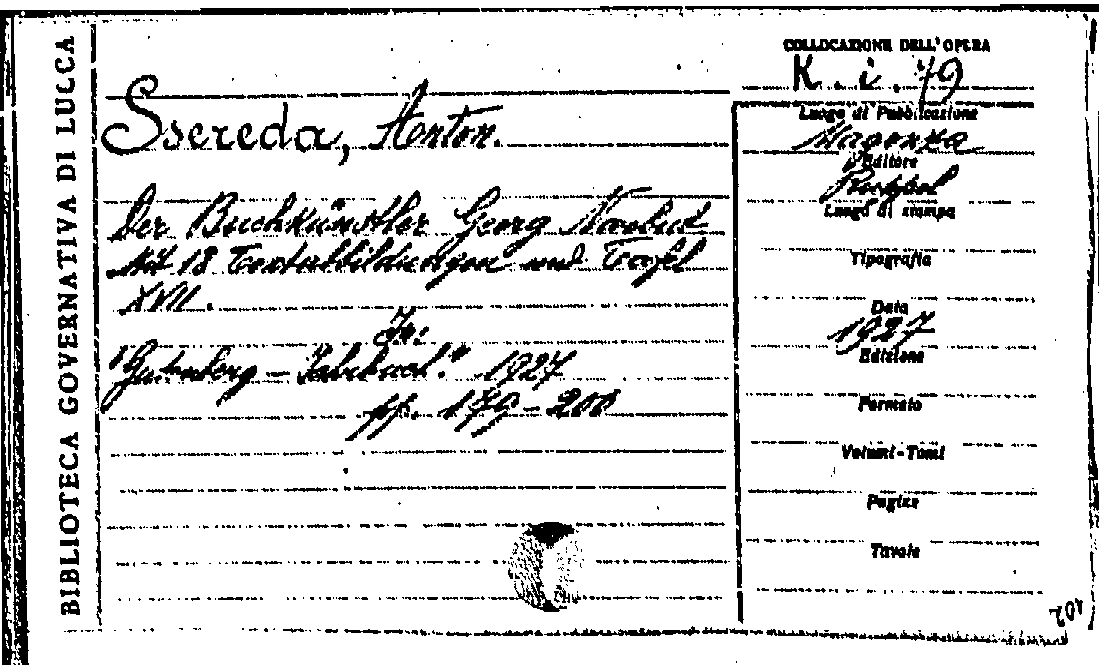 BIBLIOTECA GOVERNATIVA DI LUCCA
COLLOCAZIONE DELL'OPERA
K. i. 79
Ssereda, Anton.
Der Buchkünstler Georg Narbut
Mit 18 Textabbildungen und Tafel
XVII.
In:
"Gutenberg - Jahrbuch." 1927
pp. 179-200
Luogo di Pubblicazione
Magonza
Editore
Ruppel
Luogo di stampa
Tipografia
Data
1927
Edizione
Formato
Volumi-Tomi
Pagine
Tavole
102